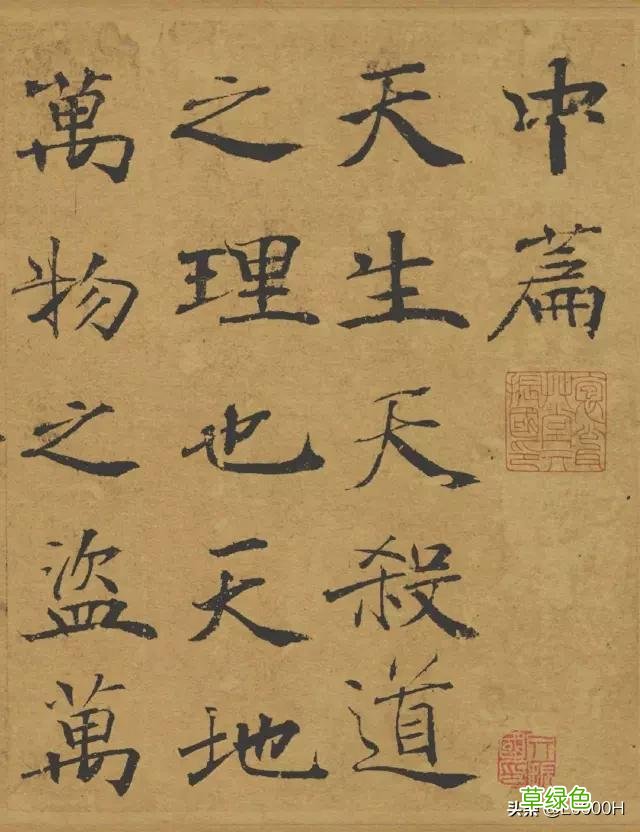 中篇
天生天殺道
之理也天地
萬物之盜萬
草绿色
头条 @LJ600H